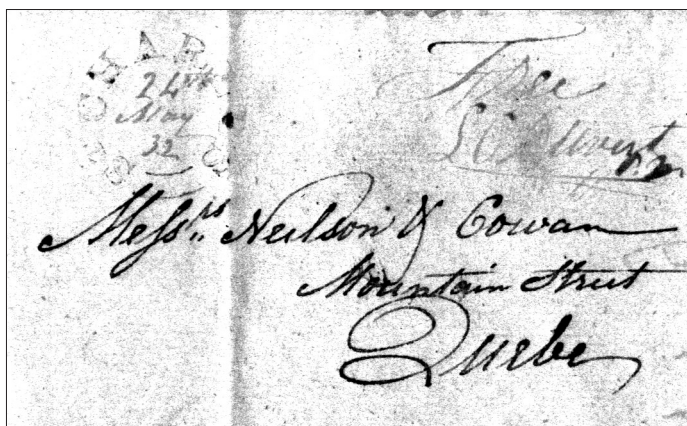 24th
May
32
Free
Messrs. Neilson & Cowan
Mountain Street
Quebec